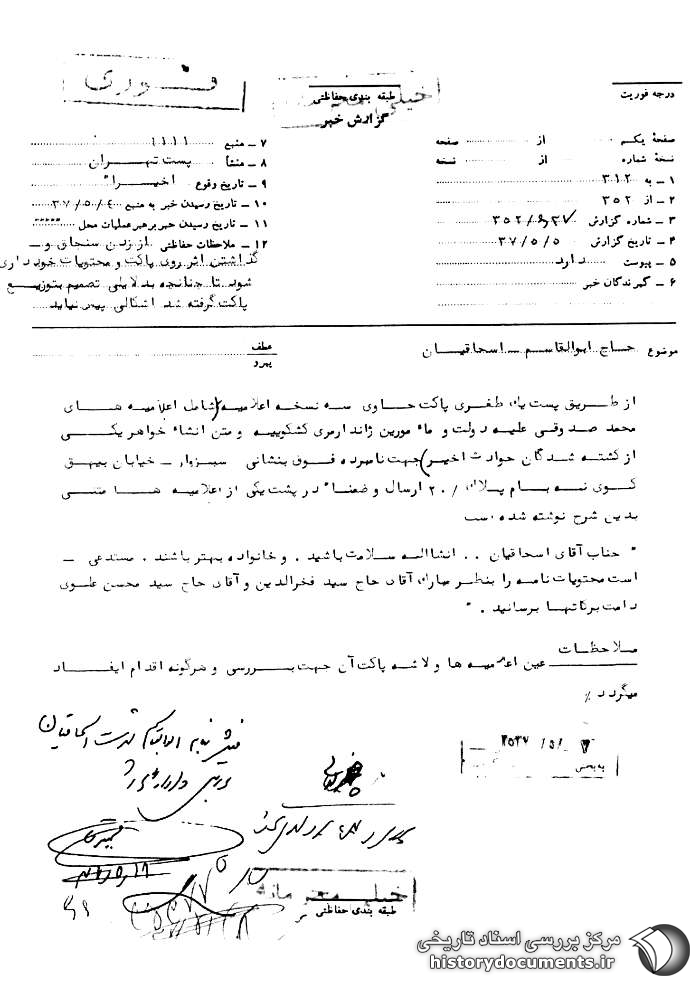 فوری
خیلی محرمانه
طبقه بندی حفاظتی
گزارش خبر
درجه فوریت
صفحهٔ یکم از صفحه
نسخهٔ شماره از نسخه
۱ – به ۳۱۲
۲ – از ۳۵۲
۳ – شماره گزارش
۴ – تاریخ گزارش ۳۷/۵/۵
۵ – پیوست دارد
۶ – گیرندگان خبر
۷ – منبع ۱۱۱۱
۸ – منشأ پست تهران
۹ – تاریخ وقوع اخیراً
۱۰ – تاریخ رسیدن خبر به منبع ۳۷/۵/۴
۱۱ – تاریخ رسیدن خبر برهبر عملیات محل
۱۲ – ملاحظات حفاظتی از زدن سنجاق و –
گذاشتن اثر روی پاکت و محتویات خودداری
شود تا چنانچه بدلایلی تصمیم بتوزیع
پاکت گرفته شد اشکالی پیش نیاید
موضوع حاج ابوالقاسم – اسحاقیان
عطف
پیرو
از طریق پست یک طغری پاکت حاوی سه نسخه اعلامیه (شامل اعلامیه های
محمد صدوقی علیه دولت و مأمورین ژاندارمری کشکوییه و متن انشاء خواهر یکی
از کشته شدگان حوادث اخیر) جهت نامبرده فوق بنشانی سبزوار – خیابان بیهق
کوی نسه بام پلاک ۲۰/ ارسال و ضمناً در پشت یکی از اعلامیه ها متنی
بدین شرح نوشته شده است
" جناب آقای اسحاقیان .. انشااله سلامت باشید . و خانواده بهتر باشند . مستدعی –
است محتویات نامه را بنظر مبارک آقای حاج سید فخرالدین و آقای حاج سید محسن علوی
دامت برکاتها برسانید . "
ملاحظات
عین اعلامیه ها و لاشه پاکت آن جهت بررسی و هرگونه اقدام ایفاد
میگردد %
۲۵۳۷/۵/۷
به بخش
خیلی محرمانه
طبقه بندی حفاظتی
مرکز بررسی اسناد تاریخی
historydocuments.ir